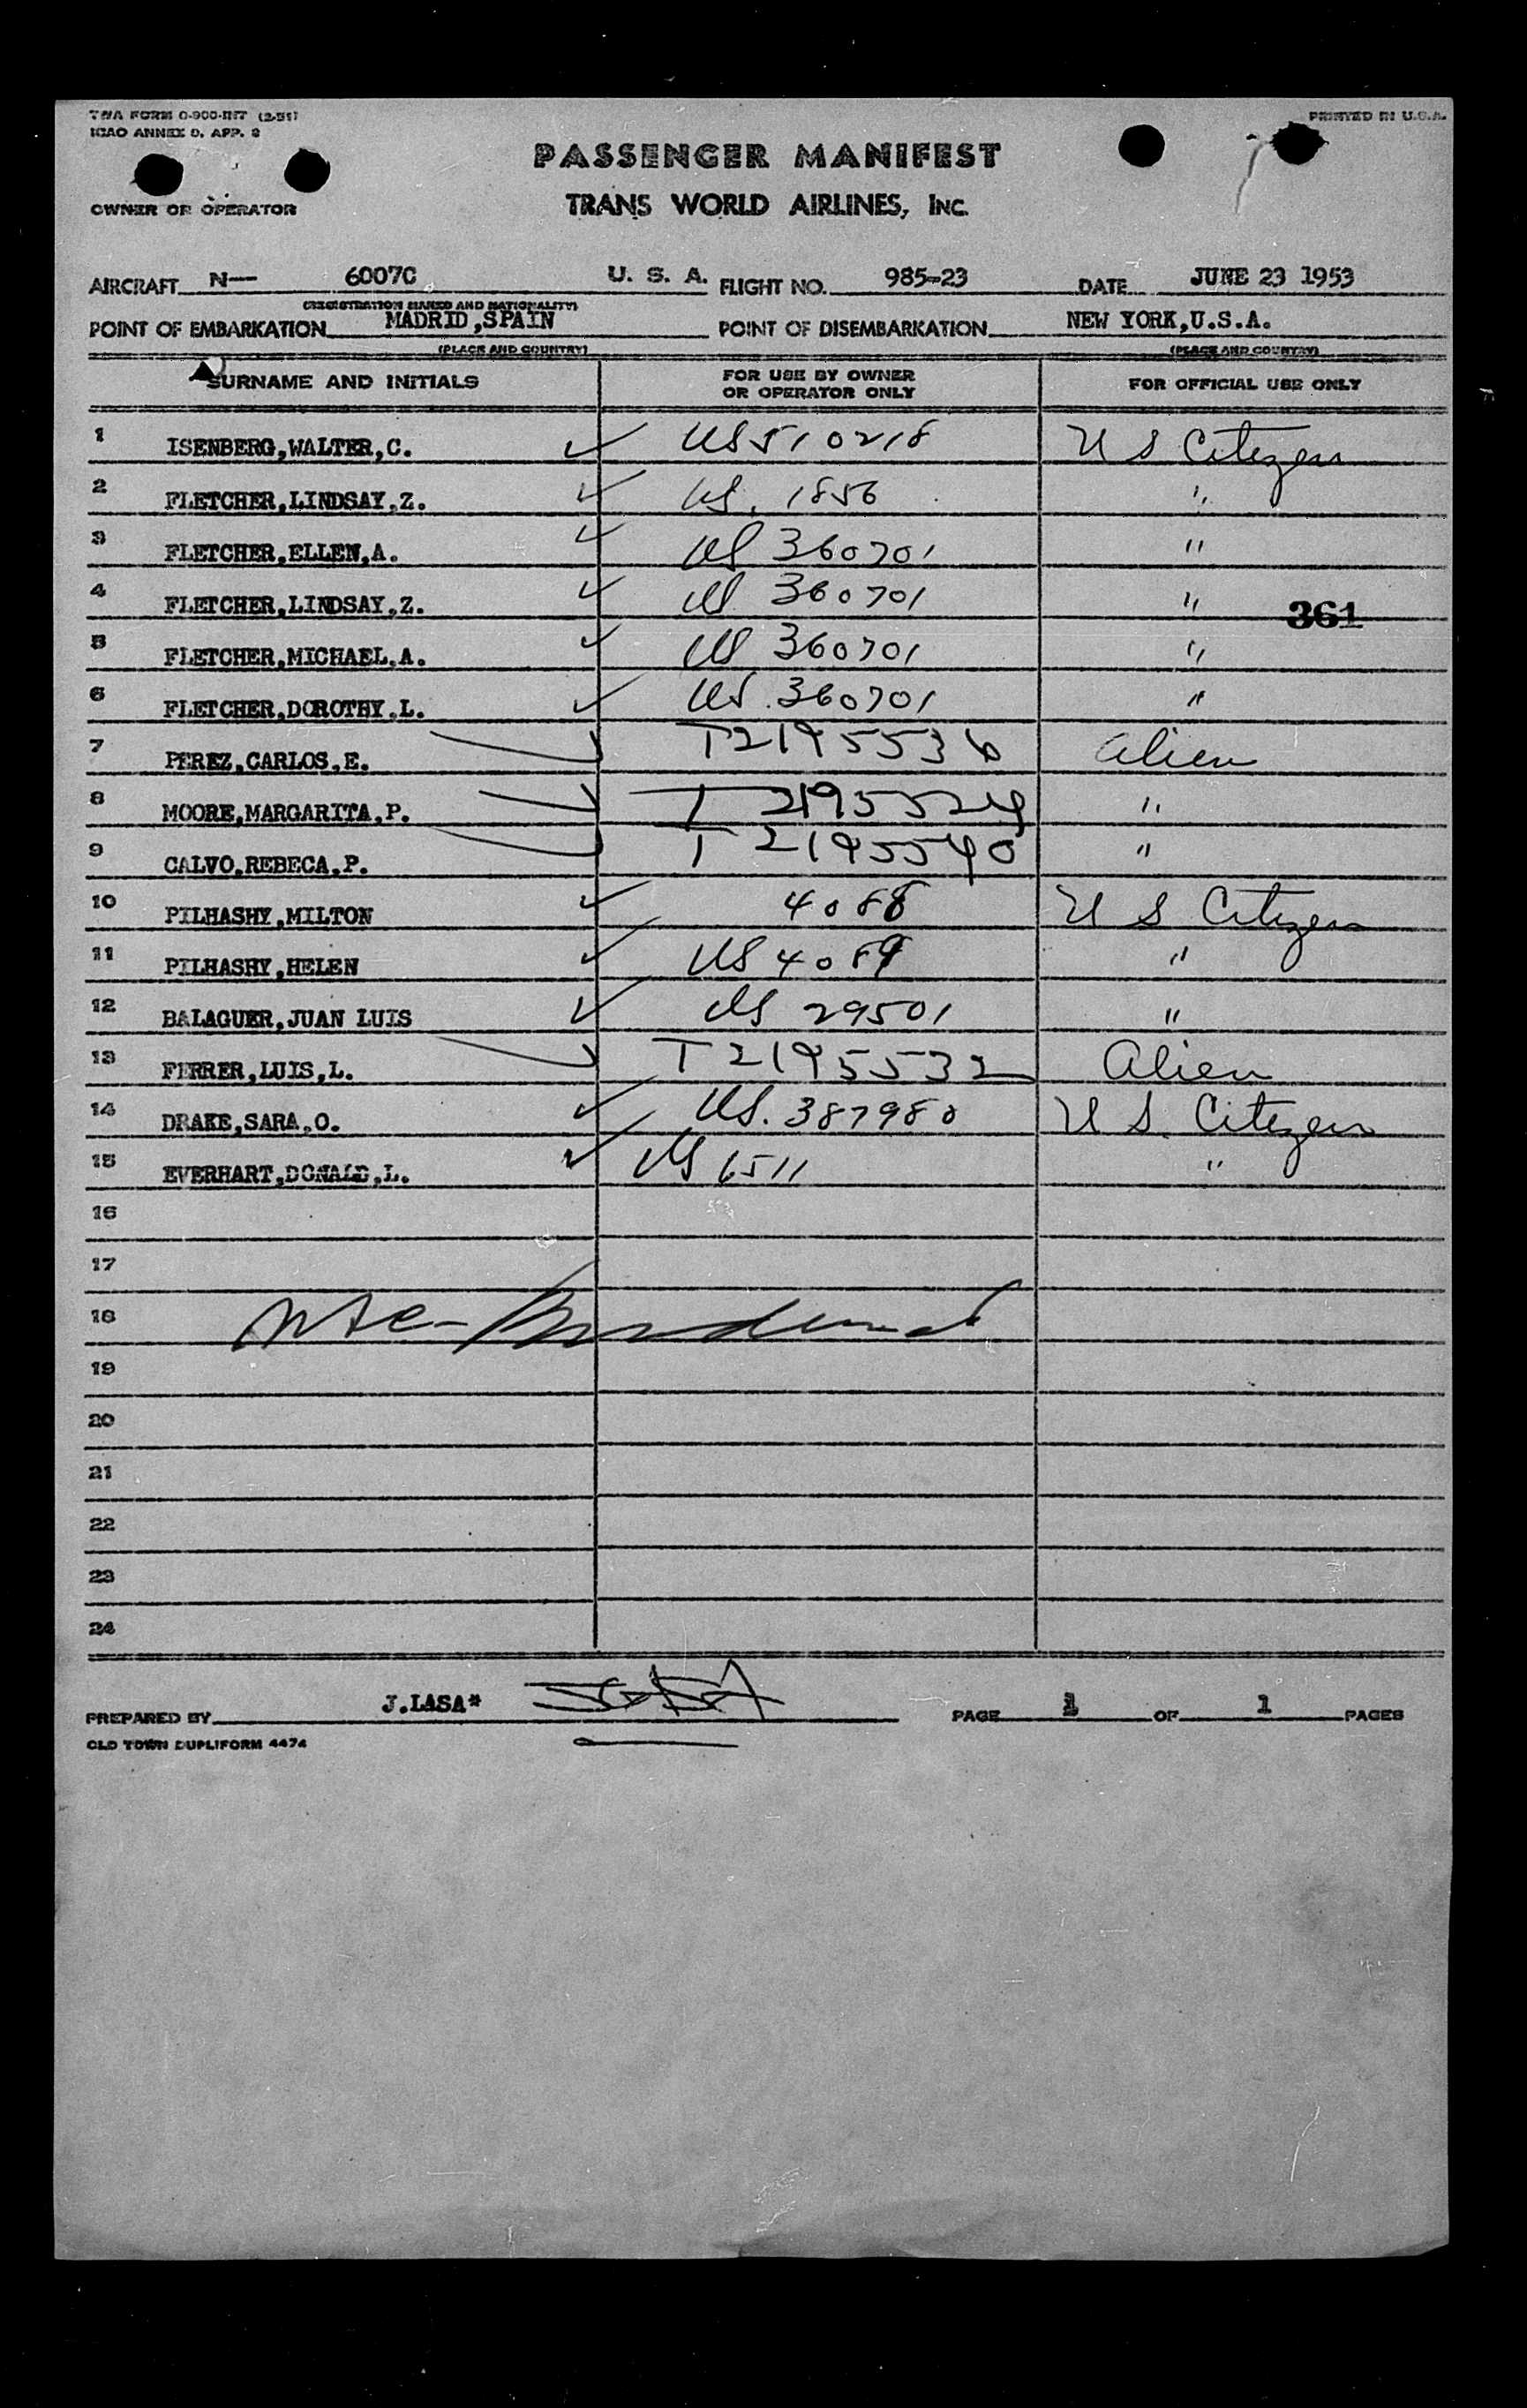 TWA FORM O-900-INT (2-51)
ICAO ANNEX 9. APP. 2
PRINTED IN U.S.A.
PASSENGER MANIFEST
OWNER OR OPERATOR
TRANS WORLD AIRLINES, INC.
AIRCRAFT N— 6007C U. S. A. FLIGHT NO. 985-23 DATE JUNE 23 1953
(REGISTRATION MARKS AND NATIONALITY)
POINT OF EMBARKATION MADRID,SPAIN POINT OF DISEMBARKATION NEW YORK,U.S.A.
(PLACE AND COUNTRY) (PLACE AND COUNTRY)
SURNAME AND INITIALS FOR USE BY OWNER OR OPERATOR ONLY FOR OFFICIAL USE ONLY
1 ISENBERG,WALTER,C. ✓ US 510218 US Citizen
2 FLETCHER,LINDSAY,Z. ✓ US. 1856 "
3 FLETCHER,ELLEN,A. ✓ US 360701 "
4 FLETCHER,LINDSAY,Z. ✓ US 360701 " 361
5 FLETCHER,MICHAEL,A. ✓ US 360701 "
6 FLETCHER,DOROTHY,L. ✓ US. 360701 "
7 PEREZ,CARLOS,E. T2195536 Alien
8 MOORE,MARGARITA,P. T 2195524 "
9 CALVO,REBECA,P. T 2195540 "
10 PILHASHY,MILTON ✓ 4088 US Citizen
11 PILHASHY,HELEN ✓ US 4089 "
12 BALAGUER,JUAN LUIS ✓ US 29501 "
13 FERRER,LUIS,L. T2195532 Alien
14 DRAKE,SARA,O. ✓ US. 387980 US Citizen
15 EVERHART,DONALD,L. ✓ US 6511 "
16
17
18
19
20
21
22
23
24
PREPARED BY J.LASA* PAGE 1 OF 1 PAGES
OLD TOWN DUPLIFORM 4474